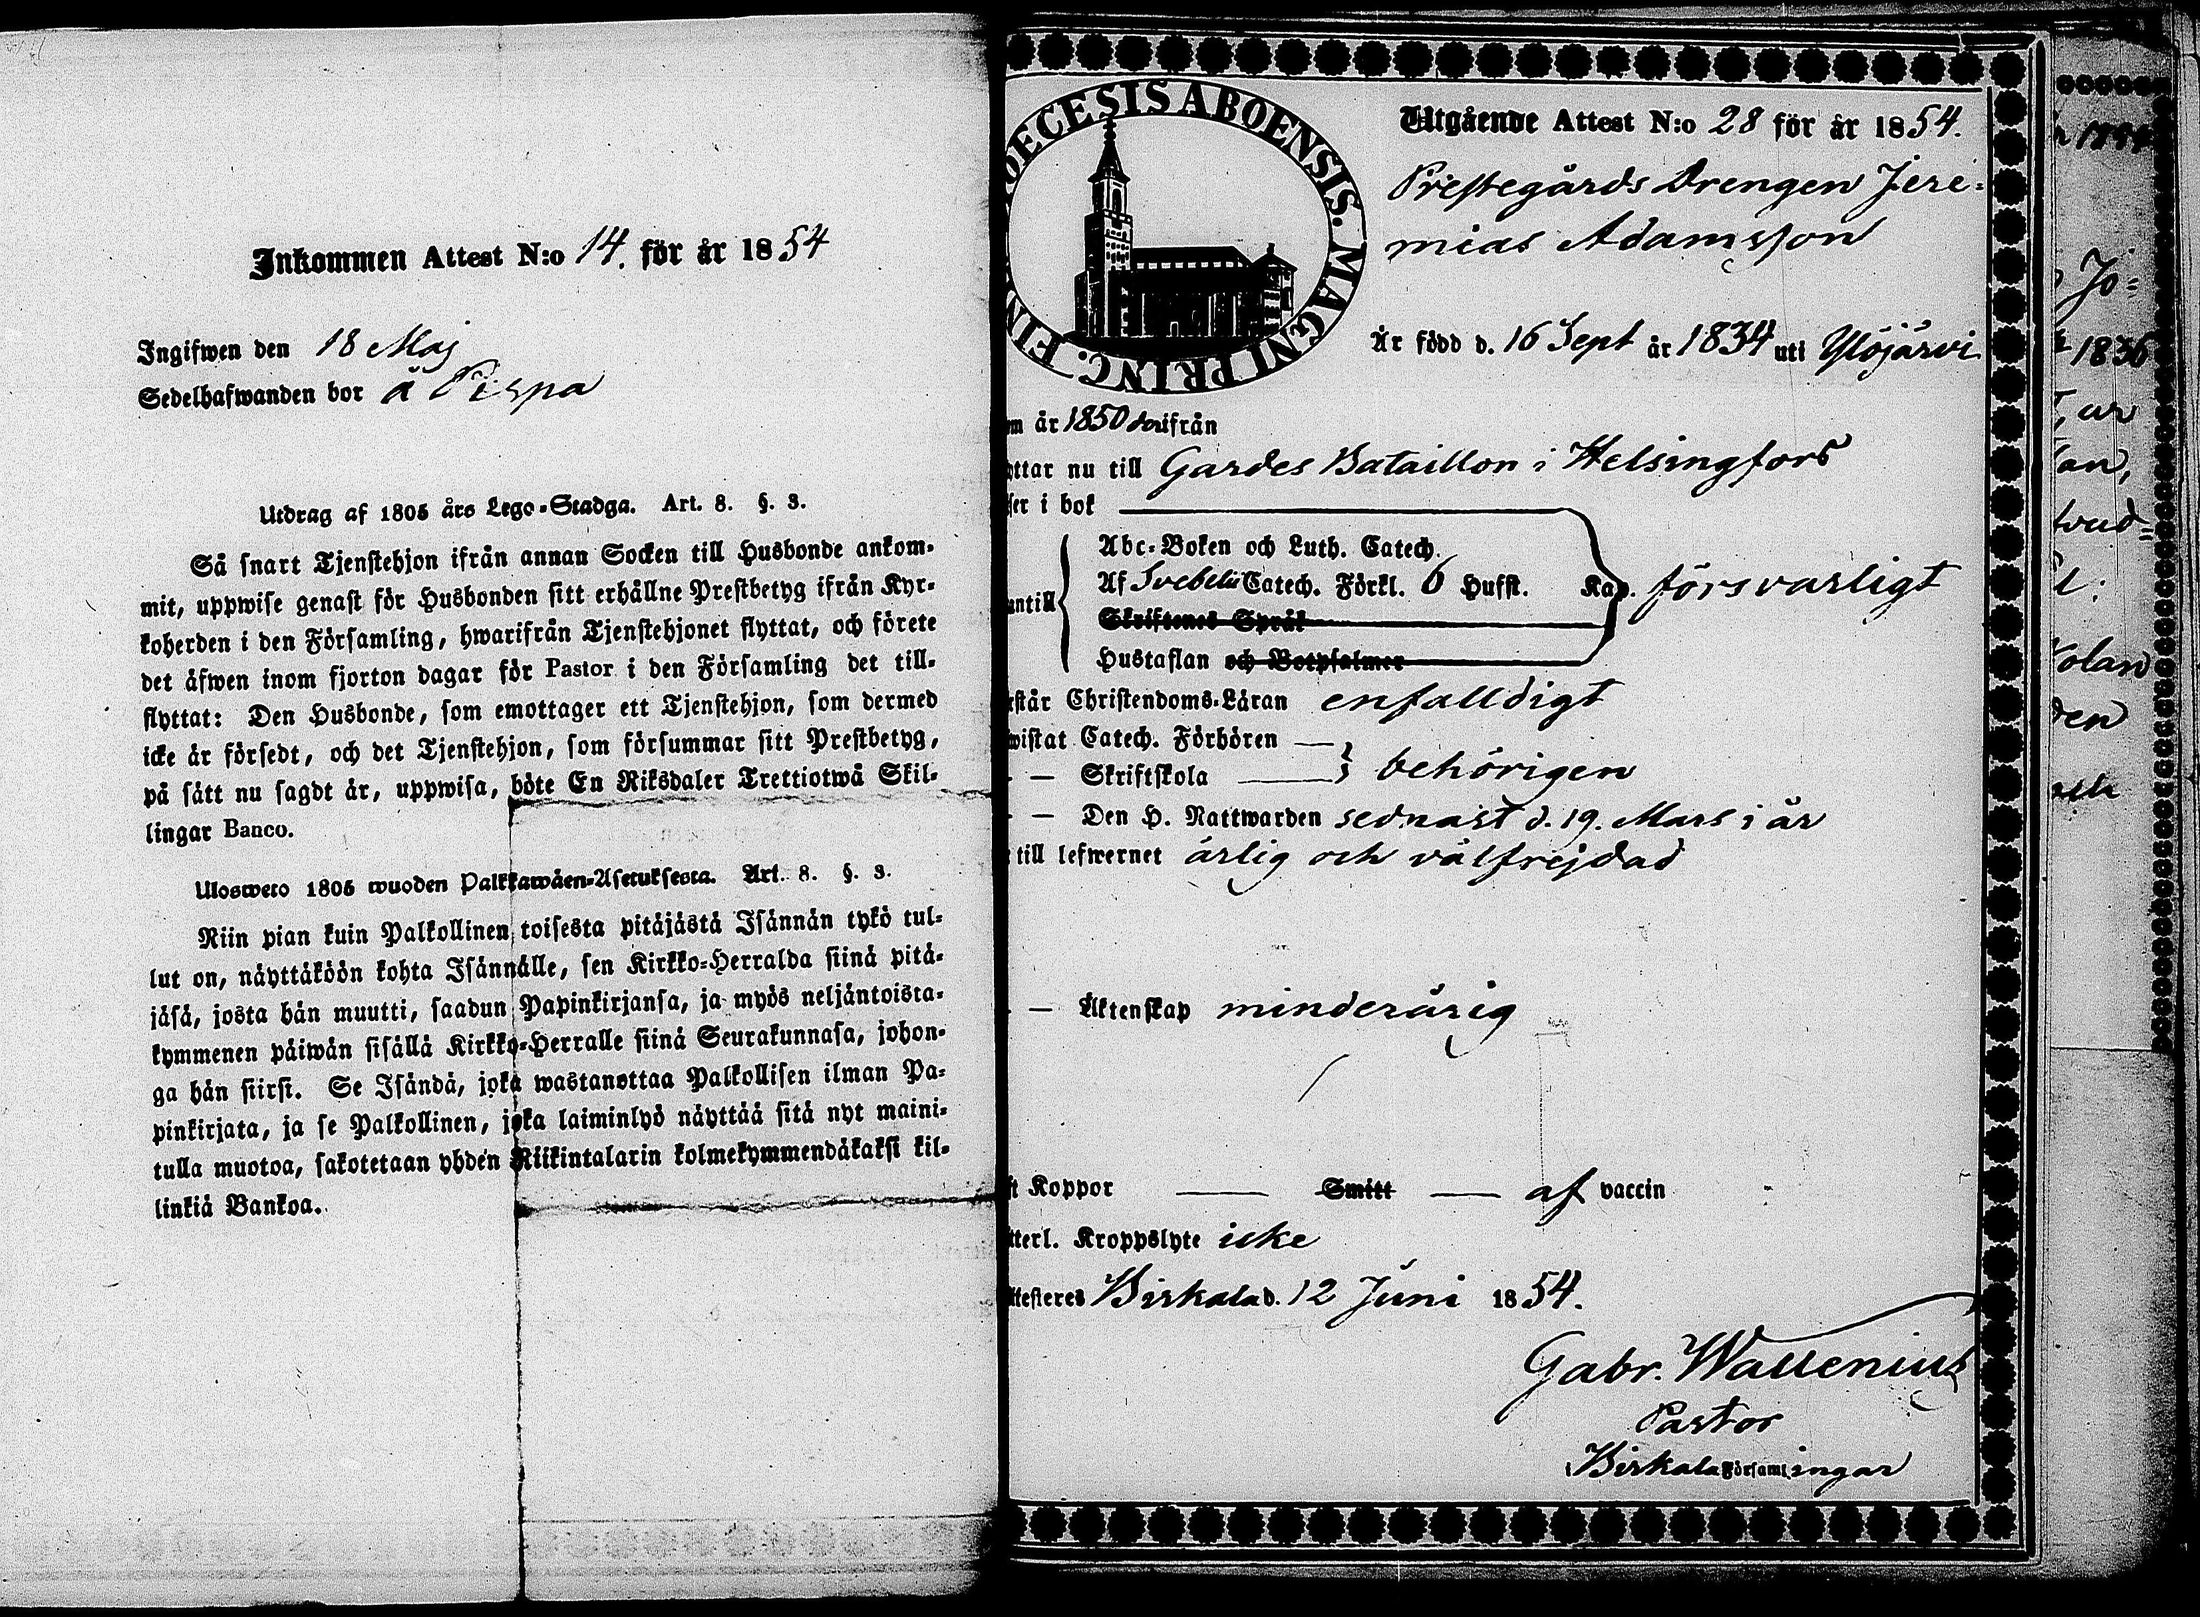 Inkommen Attest N:o 14. för år 1854
Ingifwen den 18 Maj
Sedelhafwanden bor å Pispa
Utdrag af 1805 års Lego-Stadga. Art. 8. §. 3.
Så snart Tjenstehjon ifrån annan Socken till Husbonde ankom-
mit, uppwise genast för Husbonden sitt erhållne Prestbetyg ifrån Kyr-
koherden i den Församling, hwarifrån Tjenstehjonet flyttat, och förete
det äfwen inom fjorton dagar för Pastor i den Församling det till-
flyttat: Den Husbonde, som emottager ett Tjenstehjon, som dermed
icke är försedt, och det Tjenstehjon, som försummar sitt Prestbetyg,
på sätt nu sagdt är, uppwisa, böte En Riksdaler Trettiotwå Skil-
lingar Banco.
Ulosweto 1805 wuoden Palkkawäen-Asetuksesta. Art. 8. §. 3.
Niin pian kuin Palkollinen toisesta pitäjästä Isännän tykö tul-
lut on, näyttäköön kohta Isännälle, sen Kirkko-Herralda siinä pitä-
jäsä, josta hän muutti, saadun Papinkirjansa, ja myös neljäntoista-
kymmenen päiwän sisällä Kirkko-Herralle siinä Seurakunnasa, johon-
ga hän siirsi. Se Isändä, joka wastanottaa Palkollisen ilman Pa-
pinkirjata, ja se Palkollinen, joka laiminlyö näyttää sitä nyt maini-
tulla muotoa, sakotetaan yhden Riikintalarin kolmekymmendäkaksi kil-
linkiä Bankoa.
DECESIS ABOENSIS. MAGNI PRINC. FIN
Utgående Attest N:o 28 för år 1854.
Prestegårds Drengen Jere-
mias Adamsson
Är född d. 16 Sept år 1834 uti Ylöjärvi
m år 1850 derifrån
ttar nu till Gardes Bataillon i Helsingfors
ser i bok
Abc-Boken och Luth. Catech.
Af Svebelii Catech. Förkl. 6 Hufst. Kap. försvarligt
antill
Skriftenes Språk
Hustaflan och Botpsalmer
rstår Christendoms-Läran enfalldigt
wistat Catech. Förhören
— — Skriftskola behörigen
— — Den H. Nattwarden sednast d. 19. Mars i år
till lefwernet ärlig och välfrejdad
— — Äktenskap minderårig
ft Koppor — Smitt — af vaccin
tterl. Kroppslyte icke
ttesteres Birkala d. 12 Juni 1854.
Gabr. Wallenius
Pastor
i Birkala Församlingar
Jö-
1836